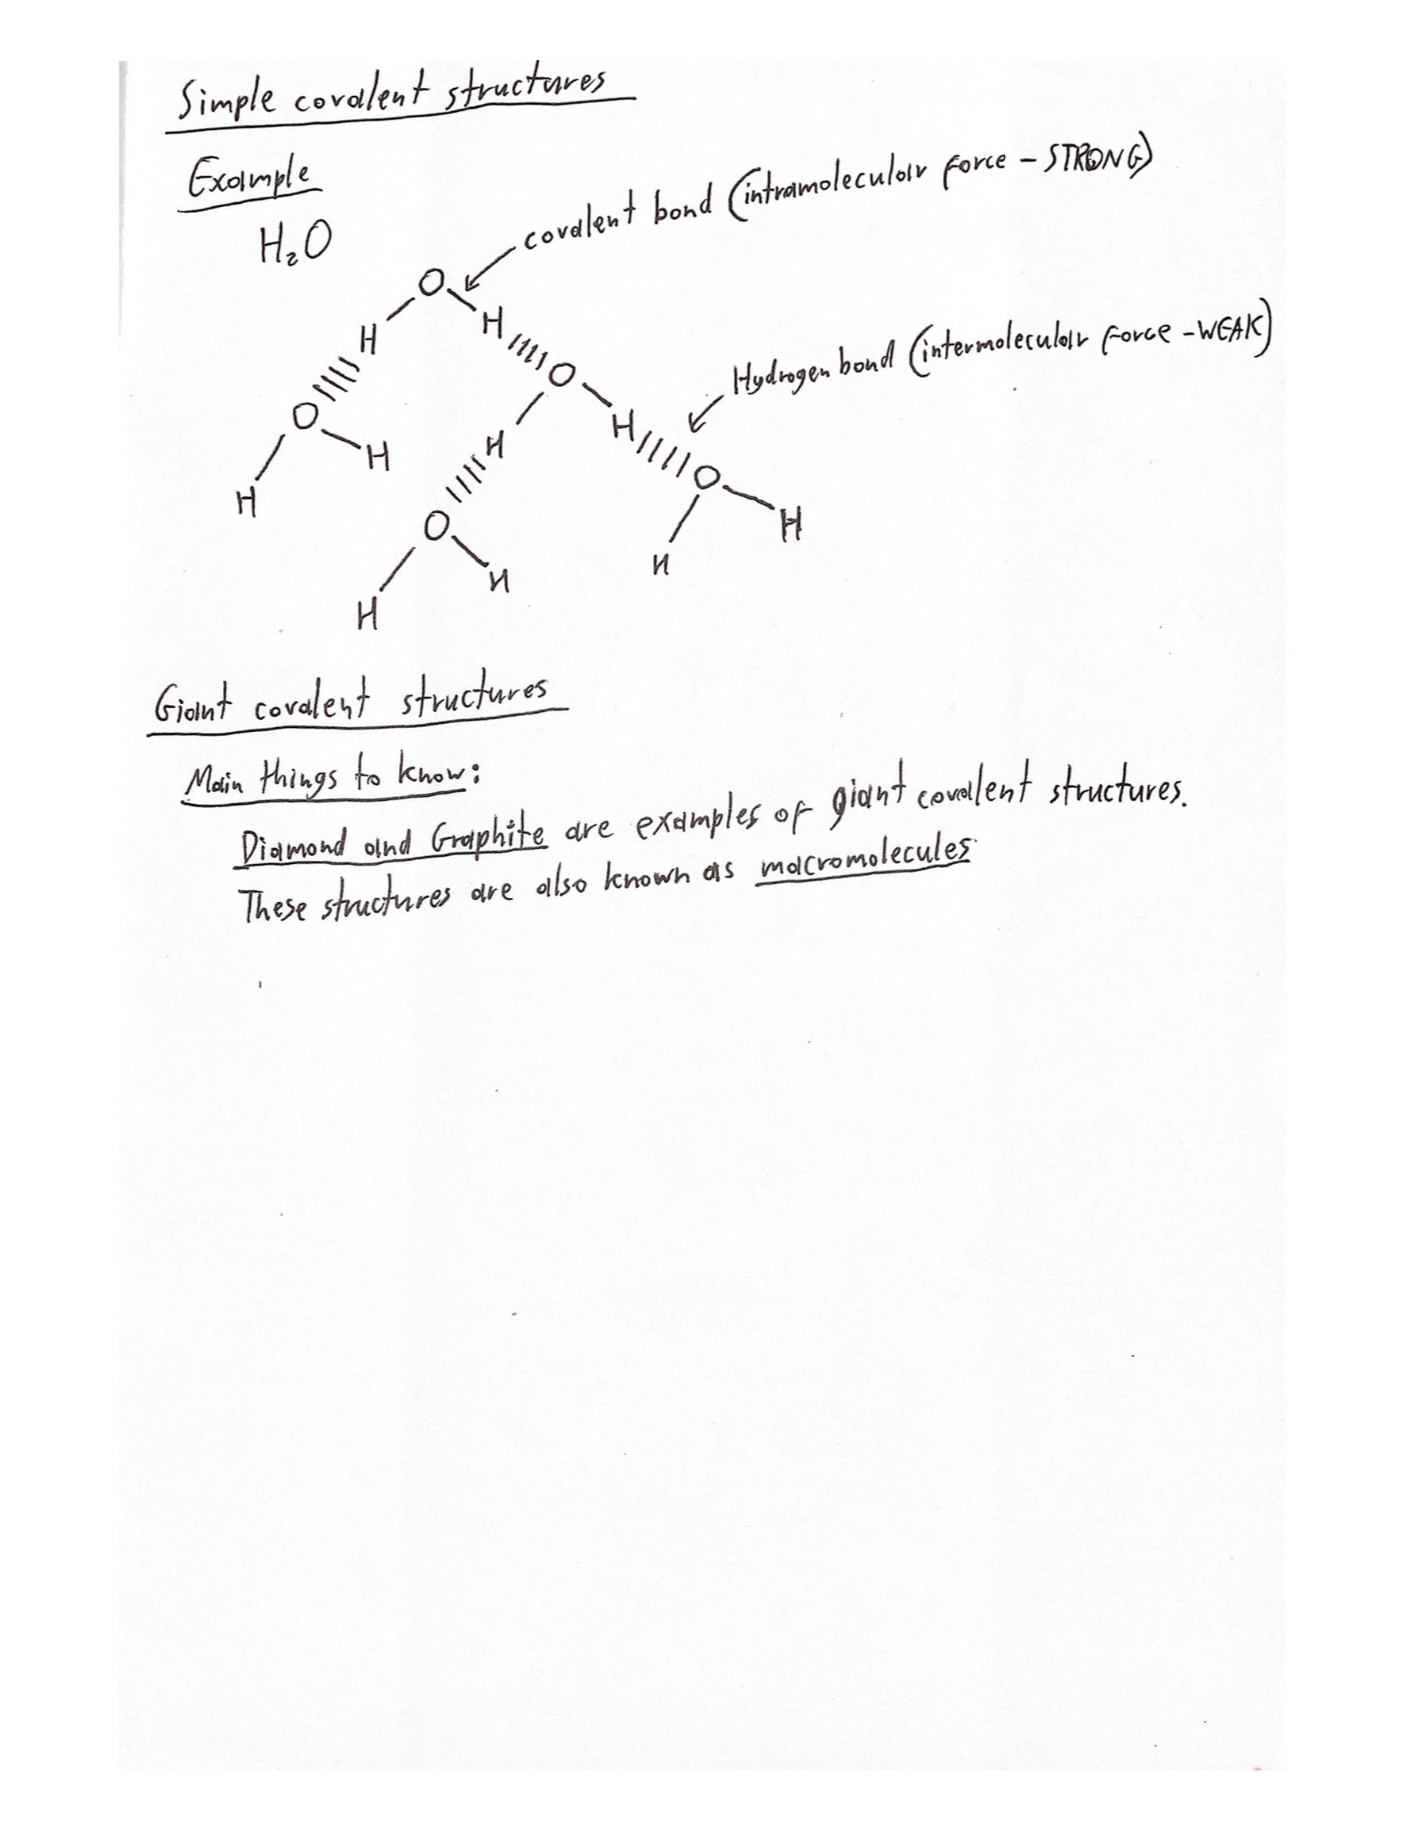 Simple covalent structures
Example
H₂O
covalent bond (intramolecular force - STRONG)
O
H
H
O
Hydrogen bond (intermolecular force - WEAK)
O
H
H
H
H
O
O
H
H
H
H
H
Giant covalent structures
Main things to know:
Diamond and Graphite are examples of giant covalent structures.
These structures are also known as macromolecules.